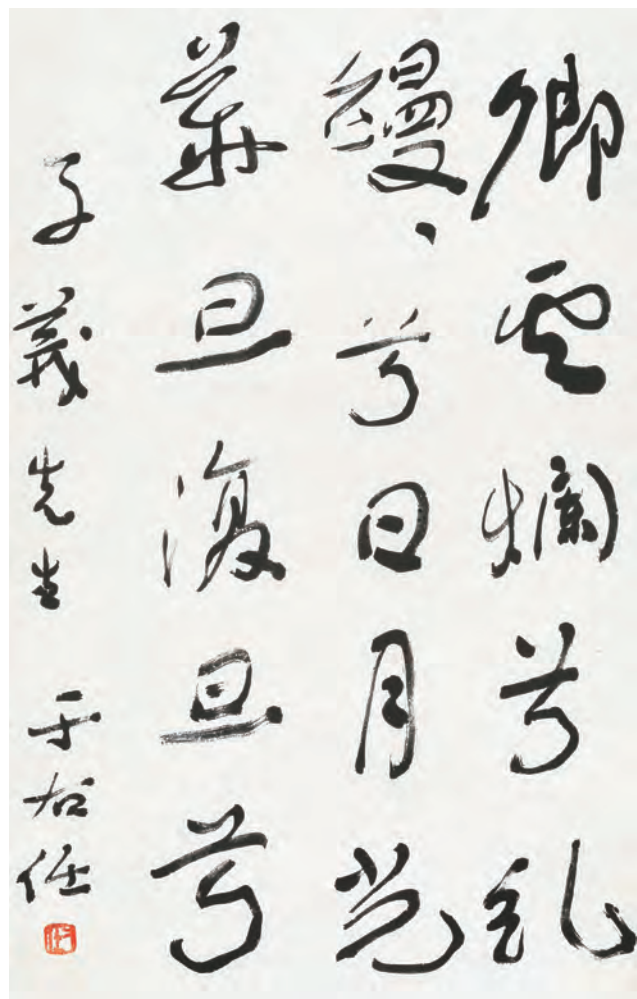 卿雲爛兮糺
縵、兮日月光
華旦復旦兮
子義先生 于右任